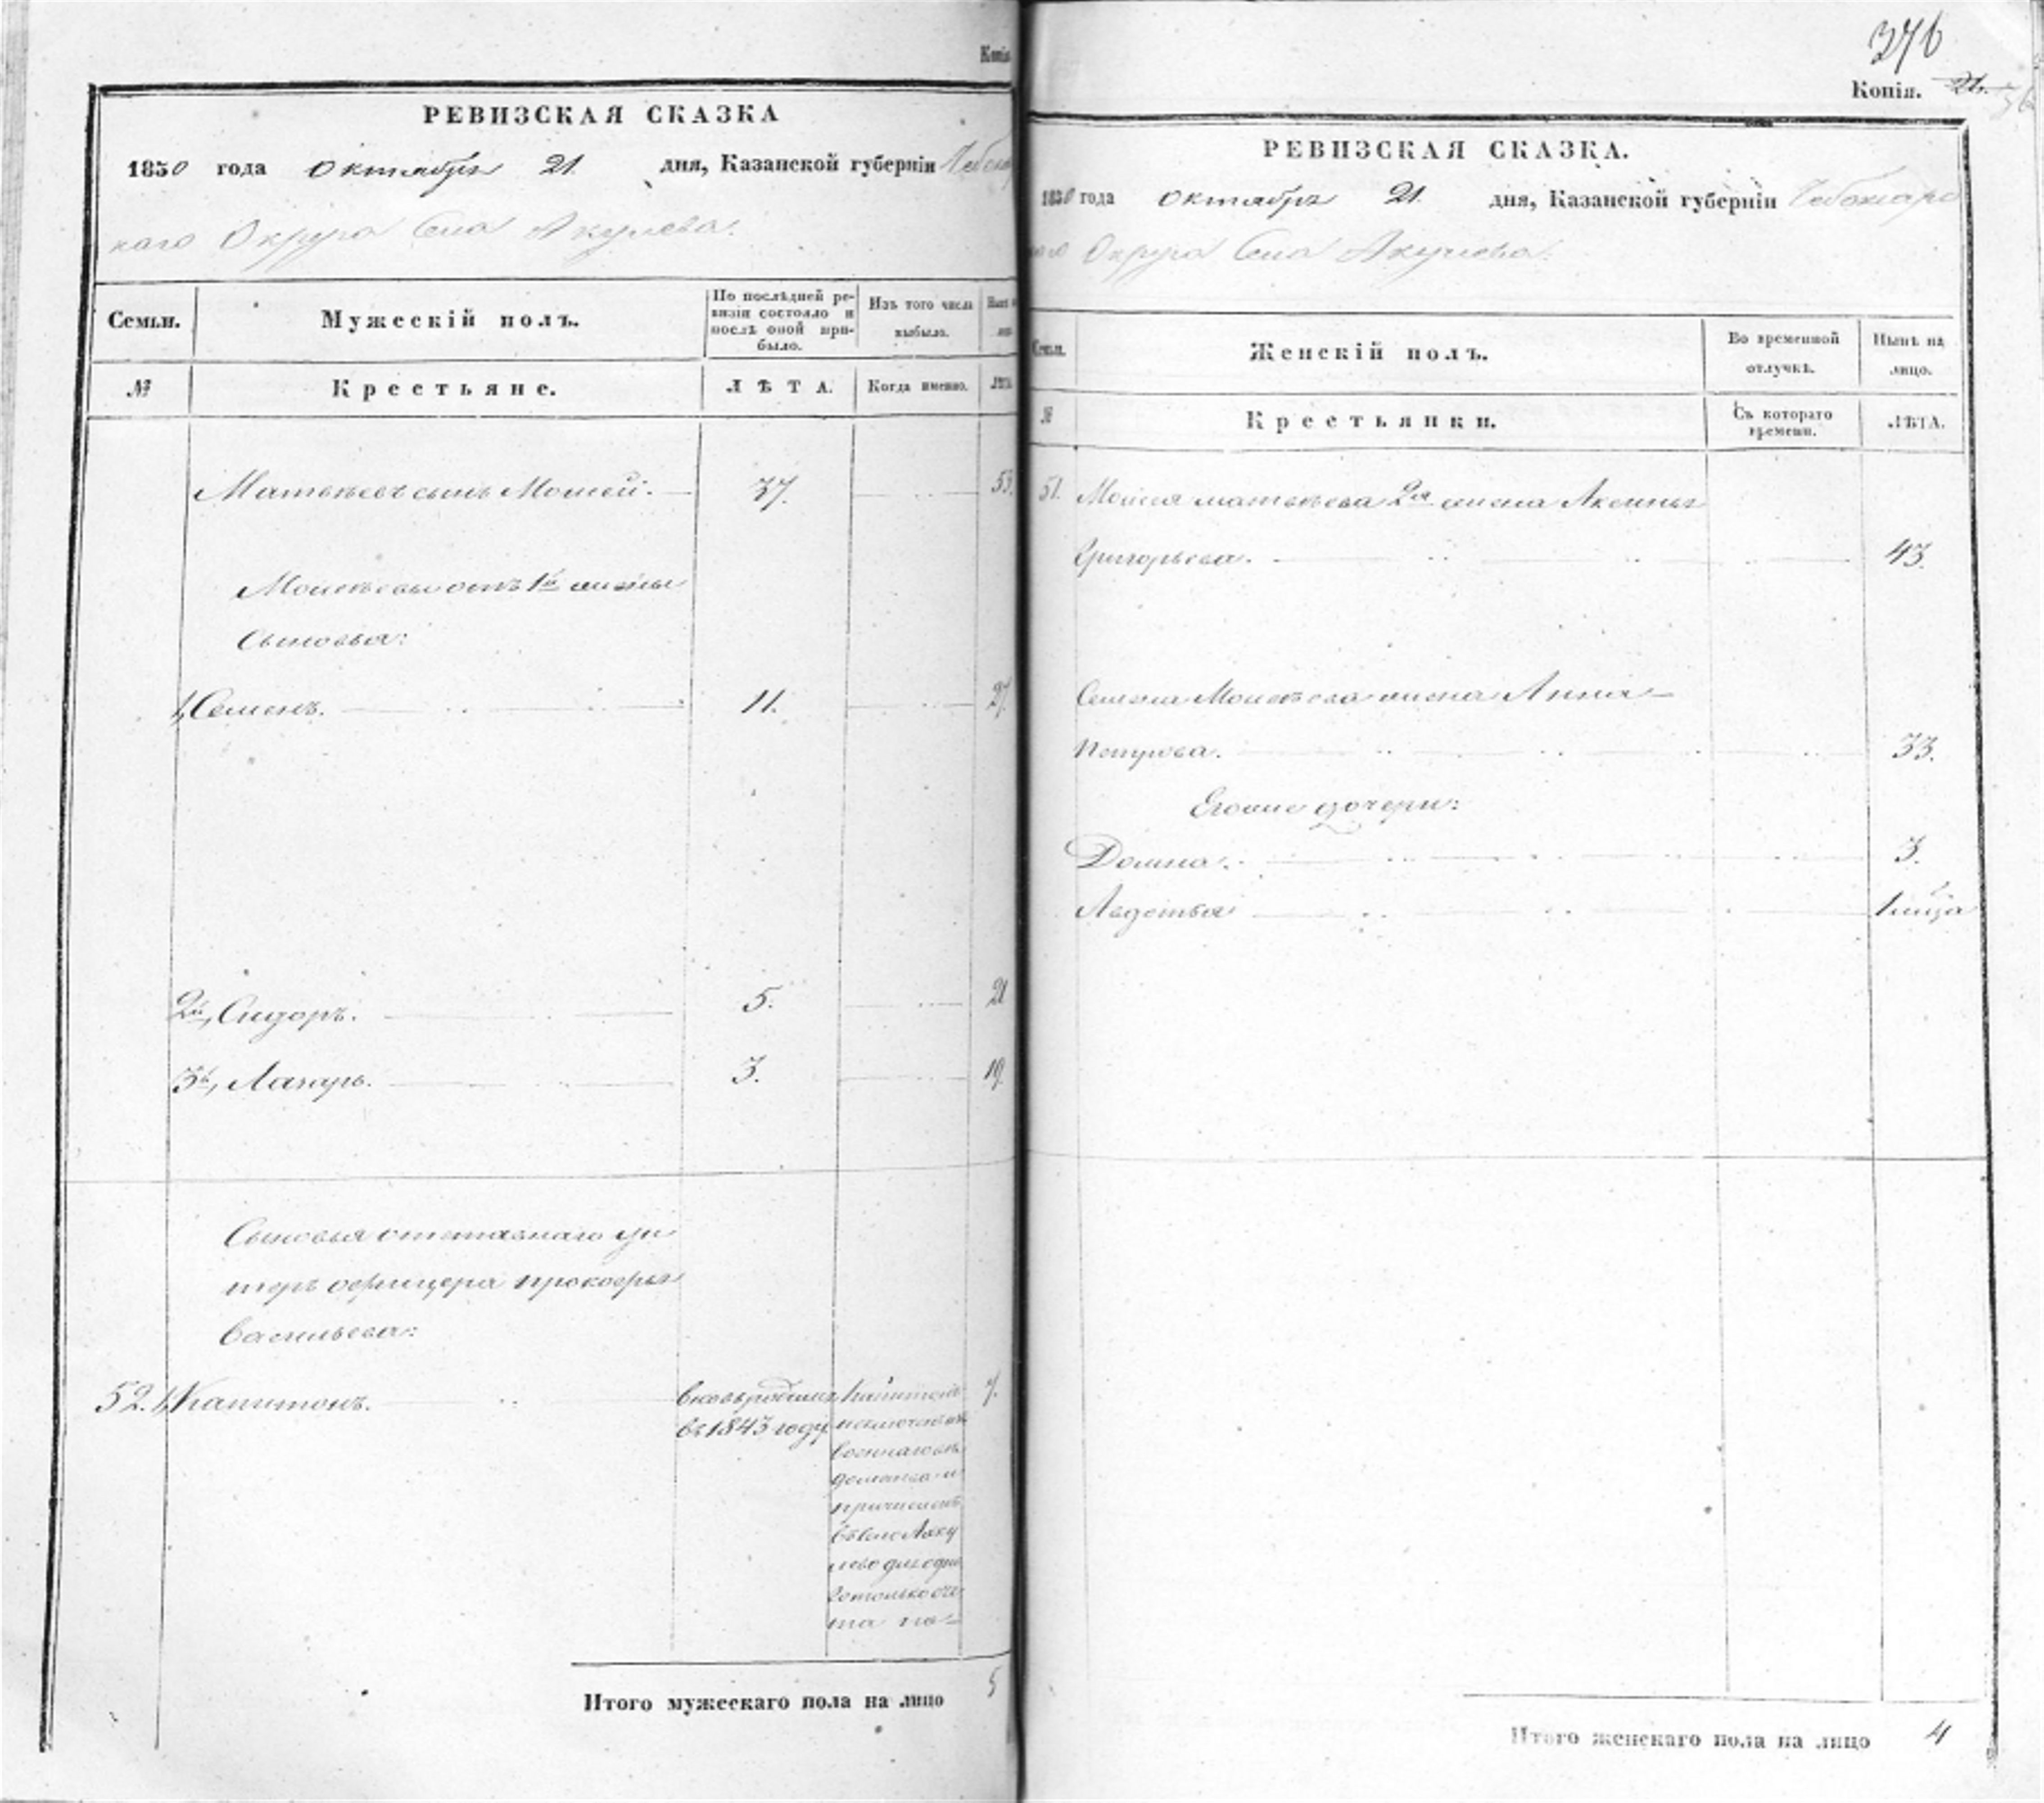 Копія
РЕВИЗСКАЯ СКАЗКА
1850 года Октября 21. дня, Казанской губерніи Чебокса
каго Округа Села Акулева.
Семьи.
Мужескій полъ.
По послѣдней ре-
визіи состояло и
послѣ оной при-
было.
Изъ того числа
выбыло.
№
Крестьяне.
ЛѢТА.
Когда именно.
Матвѣевъ сынъ Моисей. 37. 53.
Моисѣевы отъ 1й жены
Сыновья:
1, Семенъ. 11. 27.
2й, Сидоръ. 5. 21
3й, Лазарь. 3. 19.
Сыновья отставнаго ун
теръ офицера Прокофья
Васильева:
52. 1, Капитонъ. вновь рожденъ 7.
въ 1843 году
Капитонъ
исключенъ изъ
военнаго вѣ
домства и
причисленъ
въ село Аку
лево для одно
го только сче
та по=
Итого мужескаго пола на лицо 5
376
Копія. 21.
РЕВИЗСКАЯ СКАЗКА.
1850 года Октября 21. дня, Казанской губерніи Чебоксарс
каго Округа Села Акулева.
Семьи.
Женскій полъ.
Во временной
отлучкѣ.
Нынѣ на
лицо.
№
Крестьянки.
Съ котораго
времени.
ЛѢТА.
51. Моисея Матвѣева 2я жена Аксинья
Григорьева. 43.
Семена Моисѣева жена Анна
Петрова. 33.
Егоже дочери:
Домна. 3.
Авдотья 1 мѣсца
Итого женскаго пола на лицо 4